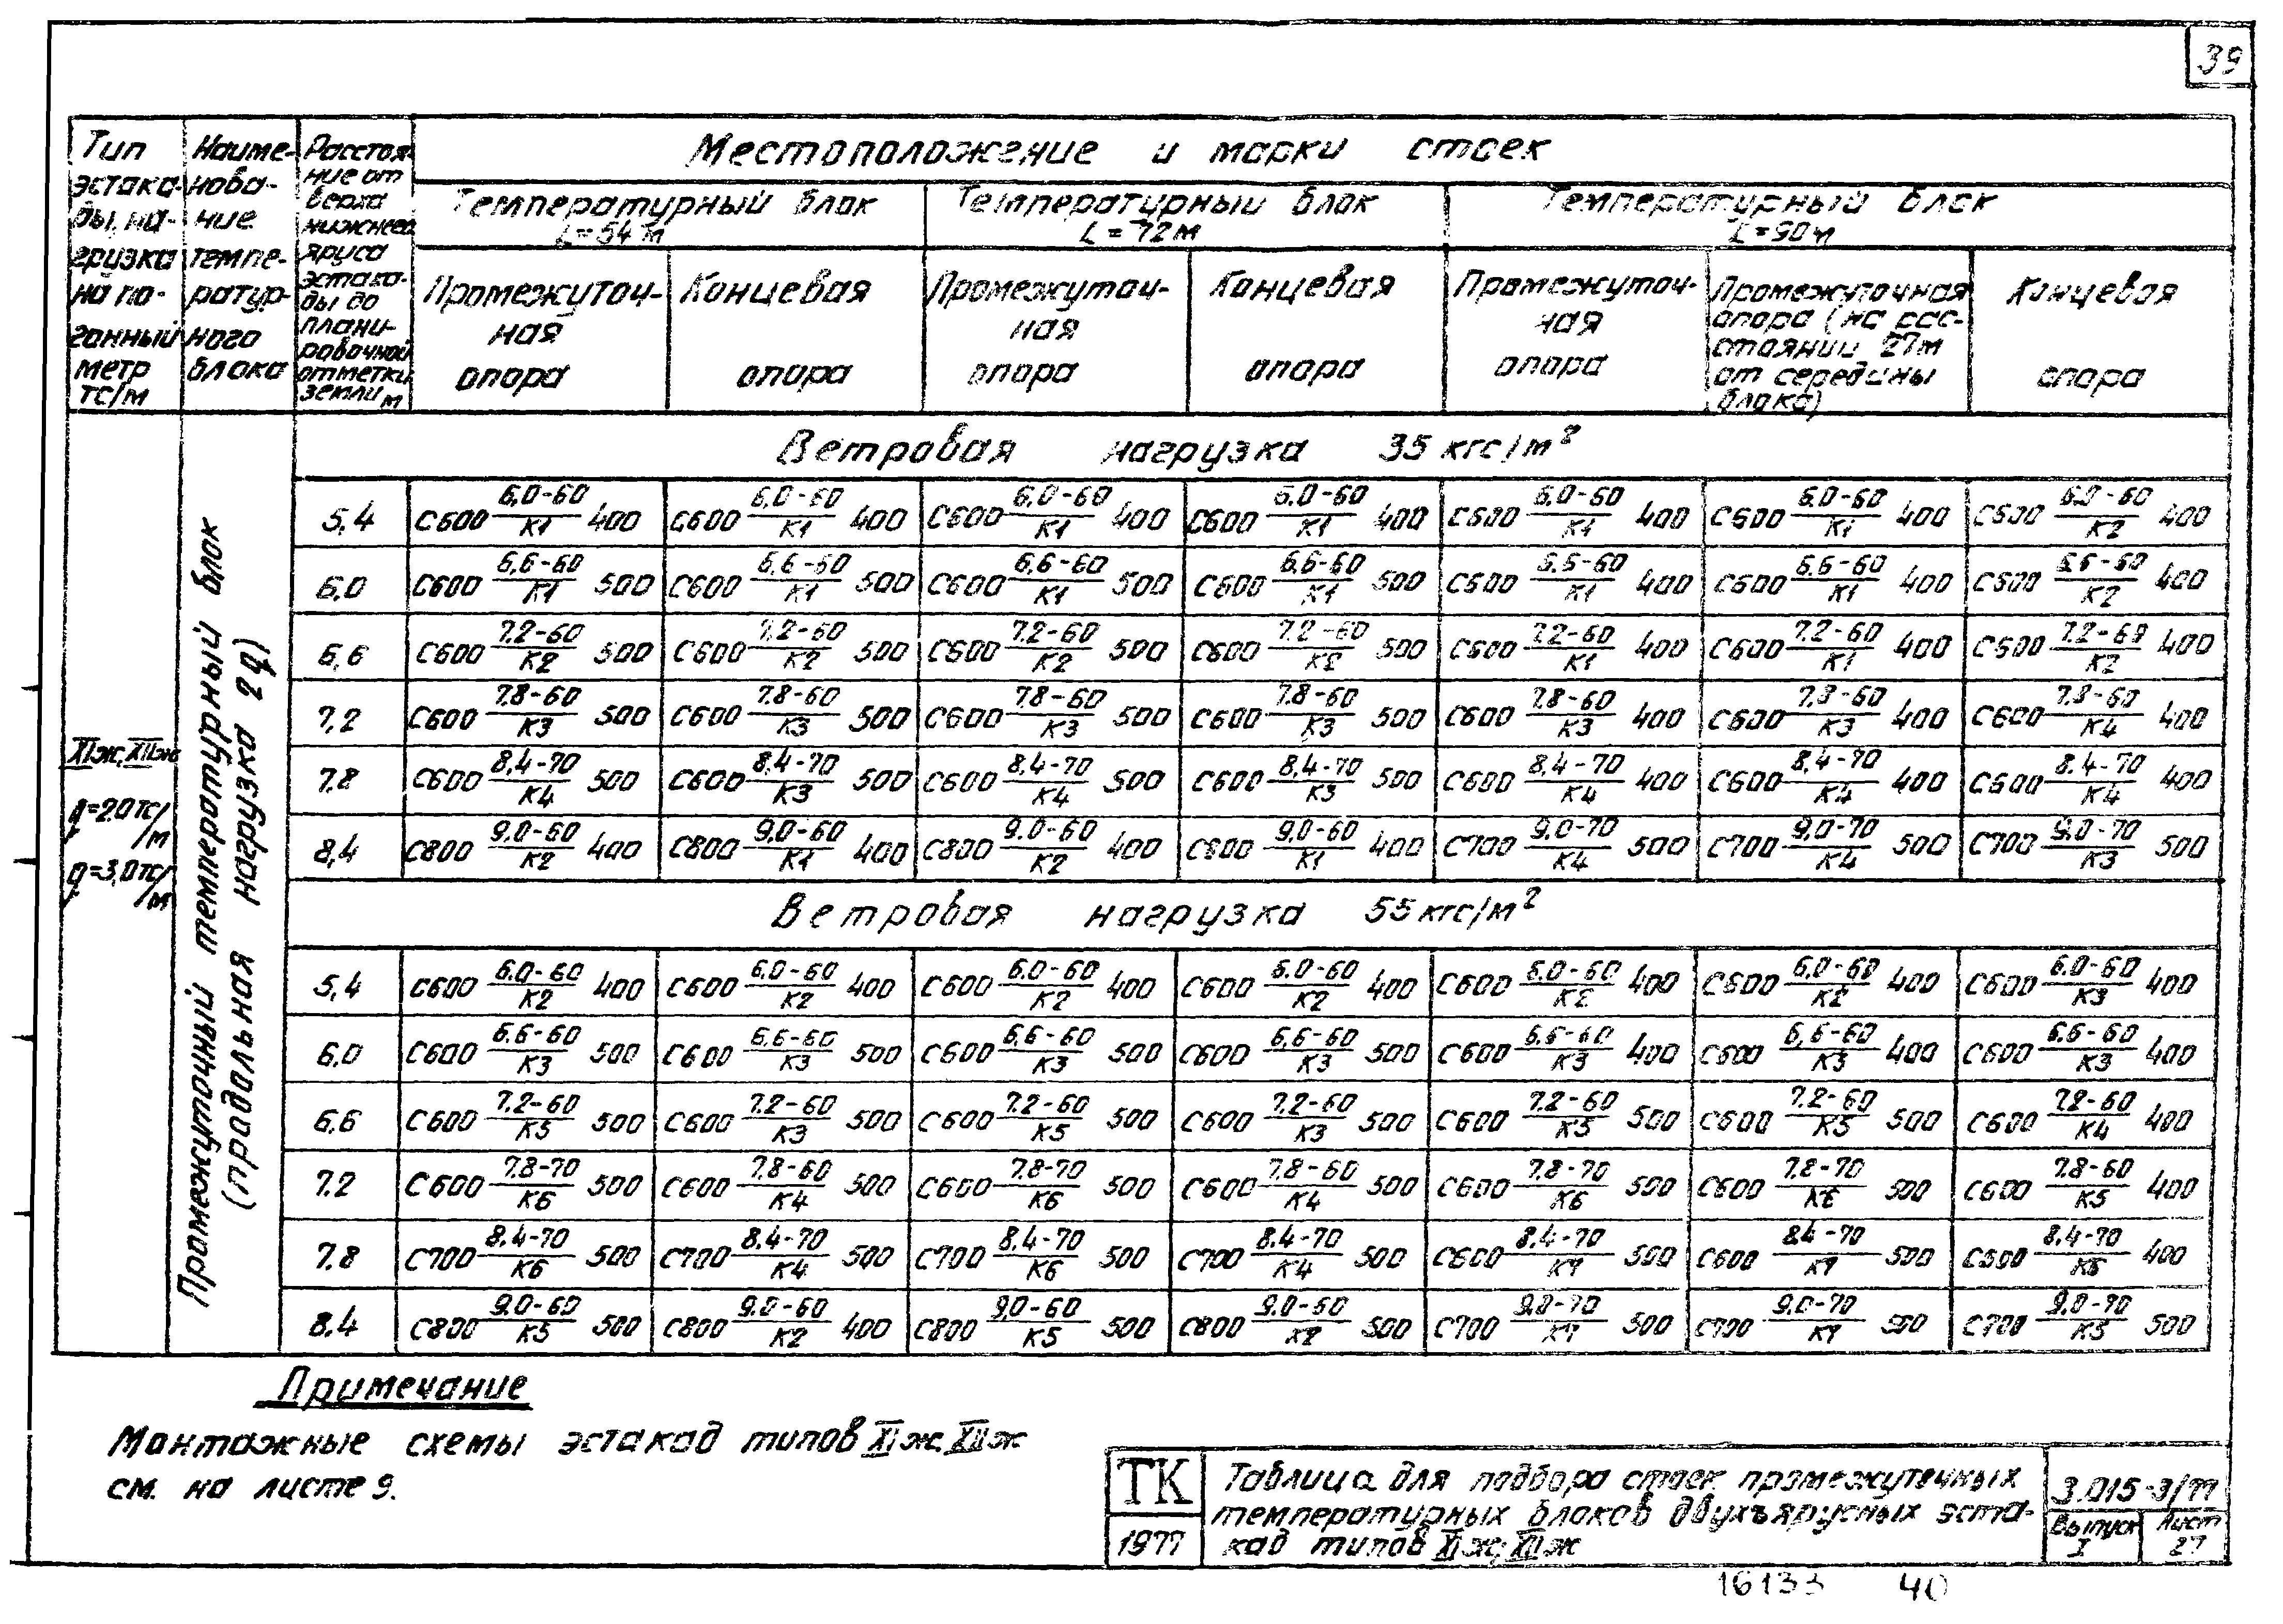 39
Тип эстака-ды, на-грузка на по-гонный метр тс/м
Наиме-нова-ние темпе-ратур-ного блока
Расстоя-ние от верха нижнего яруса эстака-ды до плани-ровочной отметки земли м
Местоположение и марки стоек
Температурный блок L=54 м
Температурный блок L=72 м
Температурный блок L=90 м
Промежуточ-ная опора
Концевая опора
Промежуточ-ная опора
Концевая опора
Промежуточ-ная опора
Промежуточная опора (на рас-стоянии 27м от середины блока)
Концевая опора
XIж, XIIж
q=2,0 тс/м
q=3,0 тс/м
Промежуточный температурный блок
(продольная нагрузка 2q)
Ветровая нагрузка 35 кгс/м²
5,4 С600 6,0-60/К1 400 С600 6,0-60/К1 400 С600 6,0-60/К1 400 С600 6,0-60/К1 400 С600 6,0-60/К1 400 С600 6,0-60/К1 400 С600 6,0-60/К2 400
6,0 С600 6,6-60/К1 500 С600 6,6-60/К1 500 С600 6,6-60/К1 500 С600 6,6-60/К1 500 С600 6,6-60/К1 400 С600 6,6-60/К1 400 С600 6,6-60/К2 400
6,6 С600 7,2-60/К2 500 С600 7,2-60/К2 500 С600 7,2-60/К2 500 С600 7,2-60/К2 500 С600 7,2-60/К1 400 С600 7,2-60/К1 400 С600 7,2-60/К2 400
7,2 С600 7,8-60/К3 500 С600 7,8-60/К3 500 С600 7,8-60/К3 500 С600 7,8-60/К3 500 С600 7,8-60/К3 400 С600 7,8-60/К3 400 С600 7,8-60/К4 400
7,8 С600 8,4-70/К4 500 С600 8,4-70/К3 500 С600 8,4-70/К4 500 С600 8,4-70/К3 500 С600 8,4-70/К4 400 С600 8,4-70/К4 400 С600 8,4-70/К4 400
8,4 С800 9,0-60/К2 400 С800 9,0-60/К1 400 С800 9,0-60/К2 400 С800 9,0-60/К1 400 С700 9,0-70/К4 500 С700 9,0-70/К4 500 С700 9,0-70/К3 500
Ветровая нагрузка 55 кгс/м²
5,4 С600 6,0-60/К2 400 С600 6,0-60/К2 400 С600 6,0-60/К2 400 С600 6,0-60/К2 400 С600 6,0-60/К2 400 С600 6,0-60/К2 400 С600 6,0-60/К3 400
6,0 С600 6,6-60/К3 500 С600 6,6-60/К3 500 С600 6,6-60/К3 500 С600 6,6-60/К3 500 С600 6,6-60/К3 400 С600 6,6-60/К3 400 С600 6,6-60/К3 400
6,6 С600 7,2-60/К5 500 С600 7,2-60/К3 500 С600 7,2-60/К5 500 С600 7,2-60/К3 500 С600 7,2-60/К5 500 С600 7,2-60/К5 500 С600 7,2-60/К4 400
7,2 С600 7,8-70/К6 500 С600 7,8-60/К4 500 С600 7,8-70/К6 500 С600 7,8-60/К4 500 С600 7,8-70/К6 500 С600 7,8-70/К6 500 С600 7,8-60/К5 400
7,8 С700 8,4-70/К6 500 С700 8,4-70/К4 500 С700 8,4-70/К6 500 С700 8,4-70/К4 500 С600 8,4-70/К7 500 С600 8,4-70/К7 500 С600 8,4-70/К6 400
8,4 С800 9,0-60/К5 500 С800 9,0-60/К2 400 С800 9,0-60/К5 500 С800 9,0-60/К2 500 С700 9,0-70/К7 500 С700 9,0-70/К7 500 С700 9,0-70/К5 500
Примечание
Монтажные схемы эстакад типов XIж, XIIж
см. на листе 9.
ТК
1977
Таблица для подбора стоек промежуточных
температурных блоков двухъярусных эста-
кад типов XIж, XIIж
3.015-3/77
Выпуск I
Лист 27
16133 40